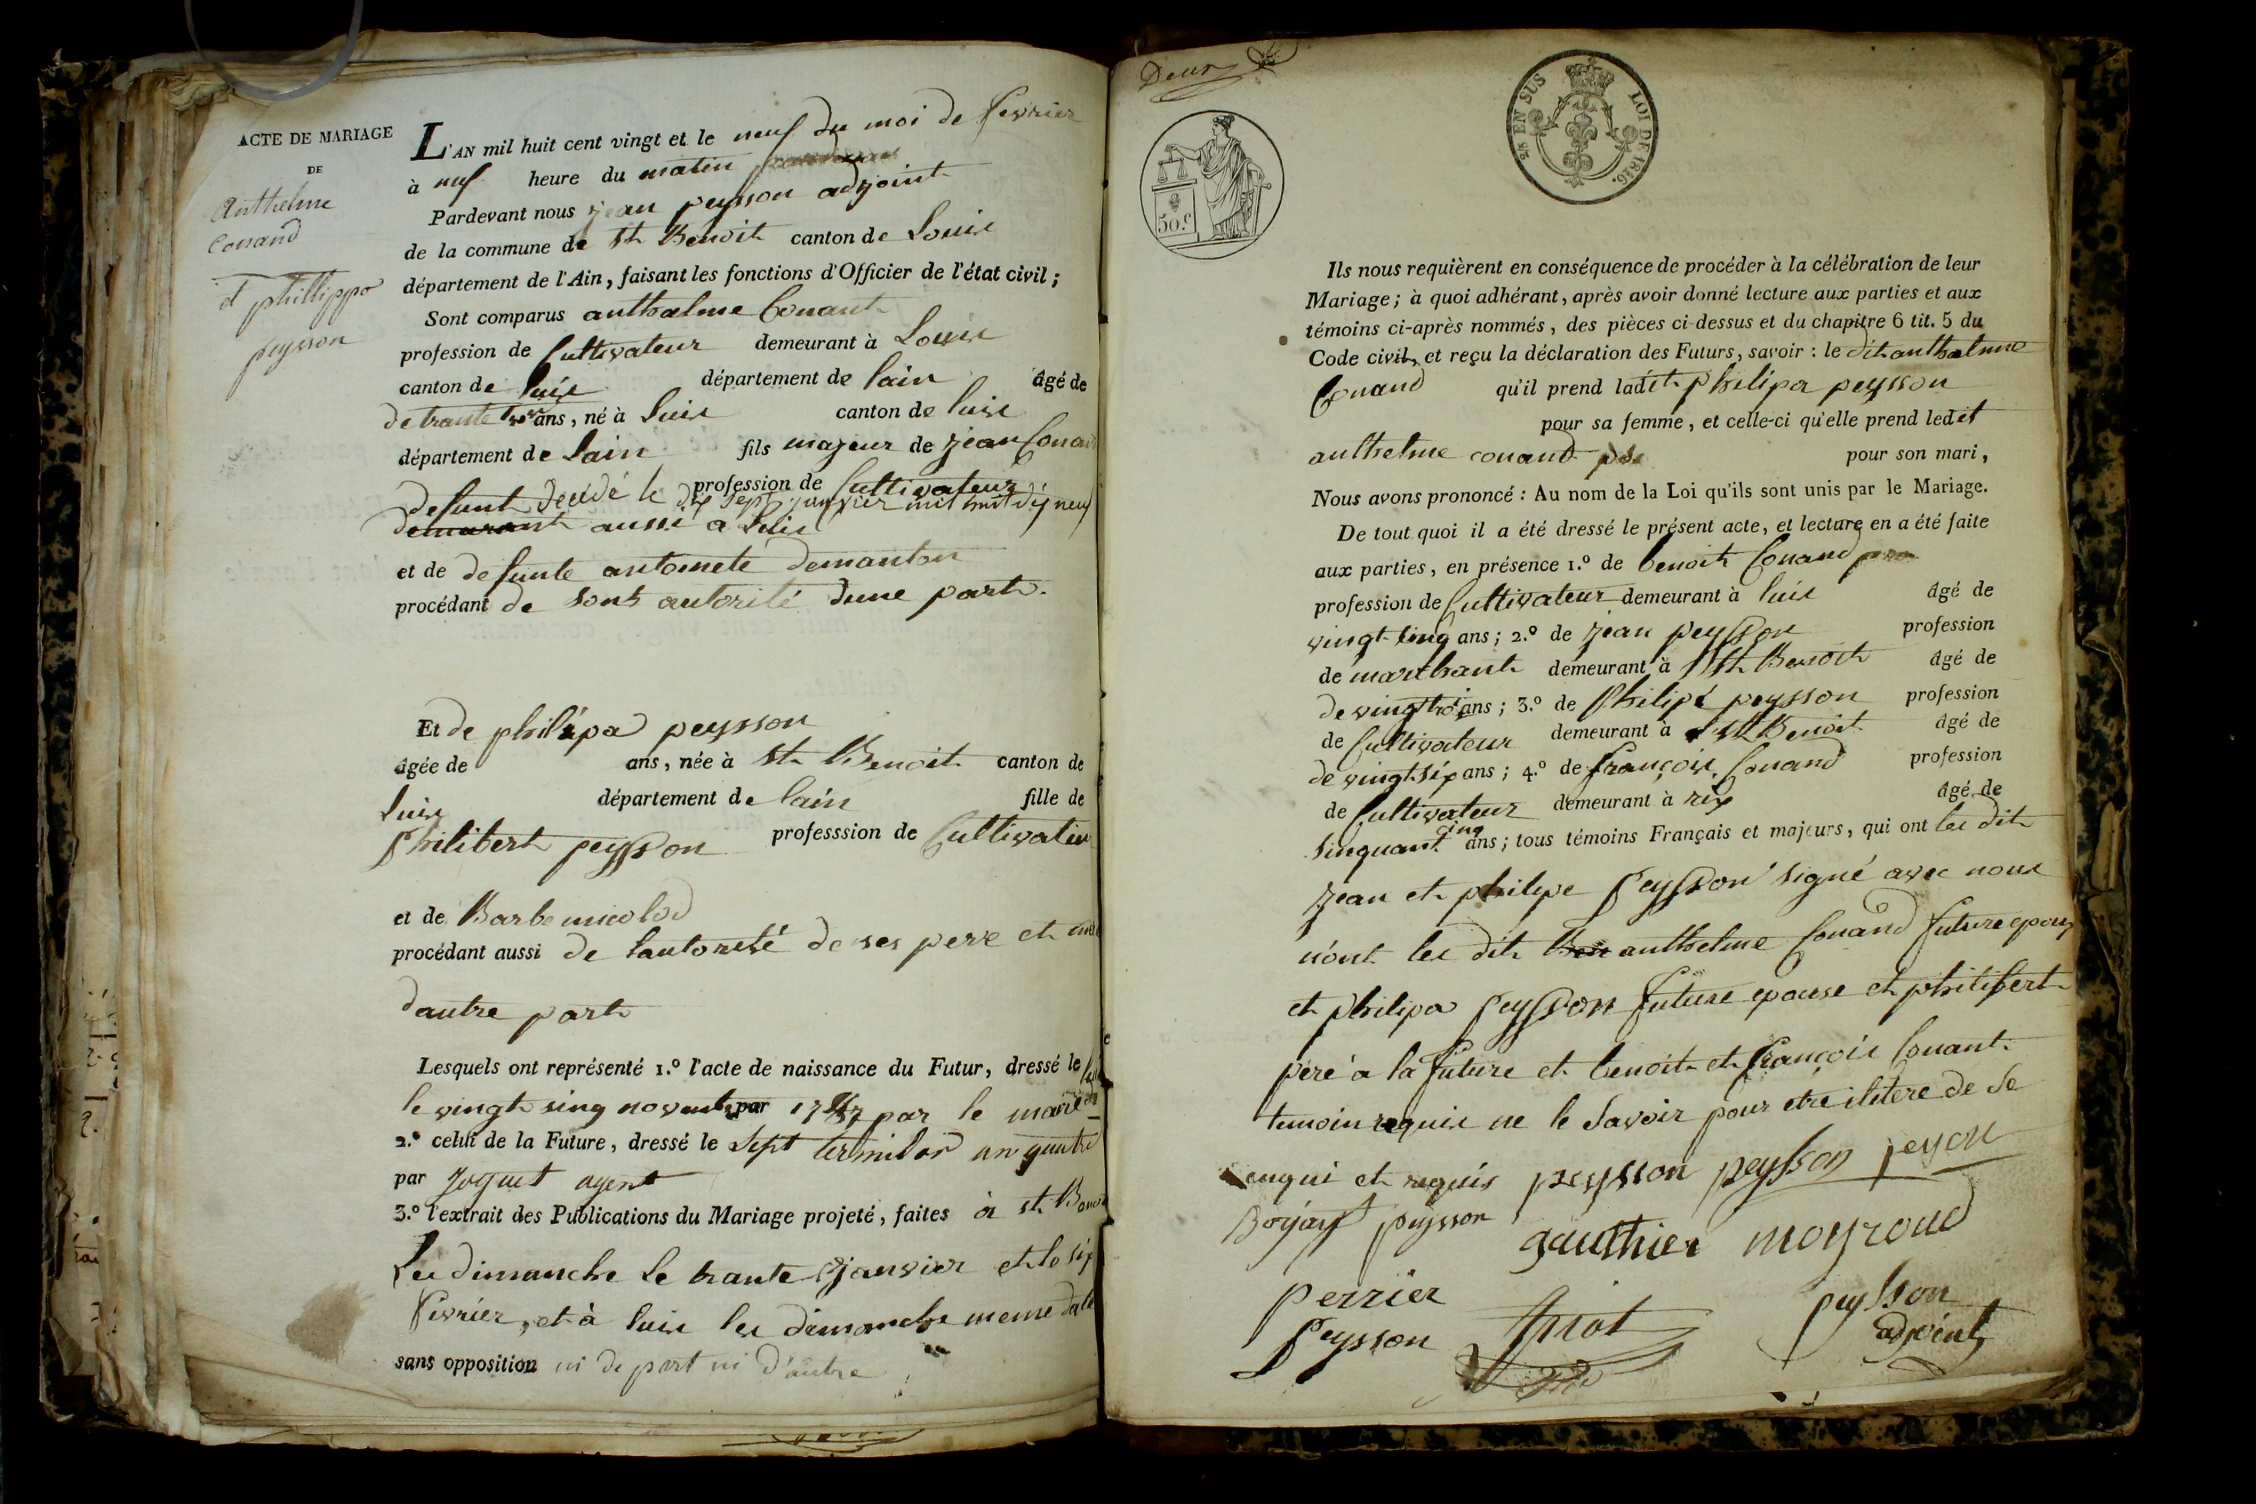 ACTE DE MARIAGE
DE
Anthelme
Conand
et phillippa
peysson
L'AN mil huit cent vingt et le neuf du moi de fevrier
à neuf heure du matin
Pardevant nous jean peysson adjoint
de la commune de St Benoit canton de Louis
département de l'Ain, faisant les fonctions d'Officier de l'état civil;
Sont comparus anthelme Conant
profession de Cultivateur demeurant à Louis
canton de luis département de lain âgé de
de trante trois ans, né à Luis canton de luis
département de Lain fils majeur de jean Conand
profession de Cultivateur
defunt decidé le dix sept janvier mil huit dix neuf
demurant aussi a Luis
et de defunte antoinete demanton
procédant de sont autorité dune part
Et de philipa peysson
âgée de ans, née à St Benoit canton de
Luis département de lain fille de
philibert peysson professsion de Cultivateur
et de Barbe micolod
procédant aussi de lautorité de ses pere et mere
dautre part
Lesquels ont représenté 1.º l'acte de naissance du Futur, dressé le
le vingt sinq novembre par 1787 par le maire
2.º celui de la Future, dressé le sept termidor an quatre
par Joguet agent
3.º l'extrait des Publications du Mariage projeté, faites à St Benoit
Les dimanche le trante janvier et le six
fevrier, et à luis les dimanche meme date
sans opposition ni de part ni d'autre
Deux
50.c
25 EN SUS LOI DE 1816.
Ils nous requièrent en conséquence de procéder à la célébration de leur
Mariage; à quoi adhérant, après avoir donné lecture aux parties et aux
témoins ci-après nommés, des pièces ci-dessus et du chapitre 6 tit. 5 du
Code civil, et reçu la déclaration des Futurs, savoir : le dit anthelme
Conand qu'il prend ladite philipa peysson
pour sa femme, et celle-ci qu'elle prend ledit
anthelme conand pour son mari,
Nous avons prononcé : Au nom de la Loi qu'ils sont unis par le Mariage.
De tout quoi il a été dressé le présent acte, et lecture en a été faite
aux parties, en présence 1.º de benoit Conand
profession de Cultivateur demeurant à luis âgé de
vingt sinq ans; 2.º de jean peysson profession
de marchant demeurant à St Benoit âgé de
de vingt trois ans; 3.º de philipe peysson profession
de Cultivateur demeurant à St Benoit âgé de
de vingt six ans; 4.º de françois Conand profession
de Cultivateur demeurant à rix âgé de
sinquant cinq ans; tous témoins Français et majeurs, qui ont les dit
jean et philipe peysson signé avec nous
n'ont les dit Ben anthelme Conand future epoux
et philipa peysson future epouse et philibert
pere a la future et benoit et françois Conant
temoin requis ne le savoir pour etre ilitere de se
enqui et requis peysson peysson peyson
peysson gauthier moyroud
perrier
peysson peysson
adjoint